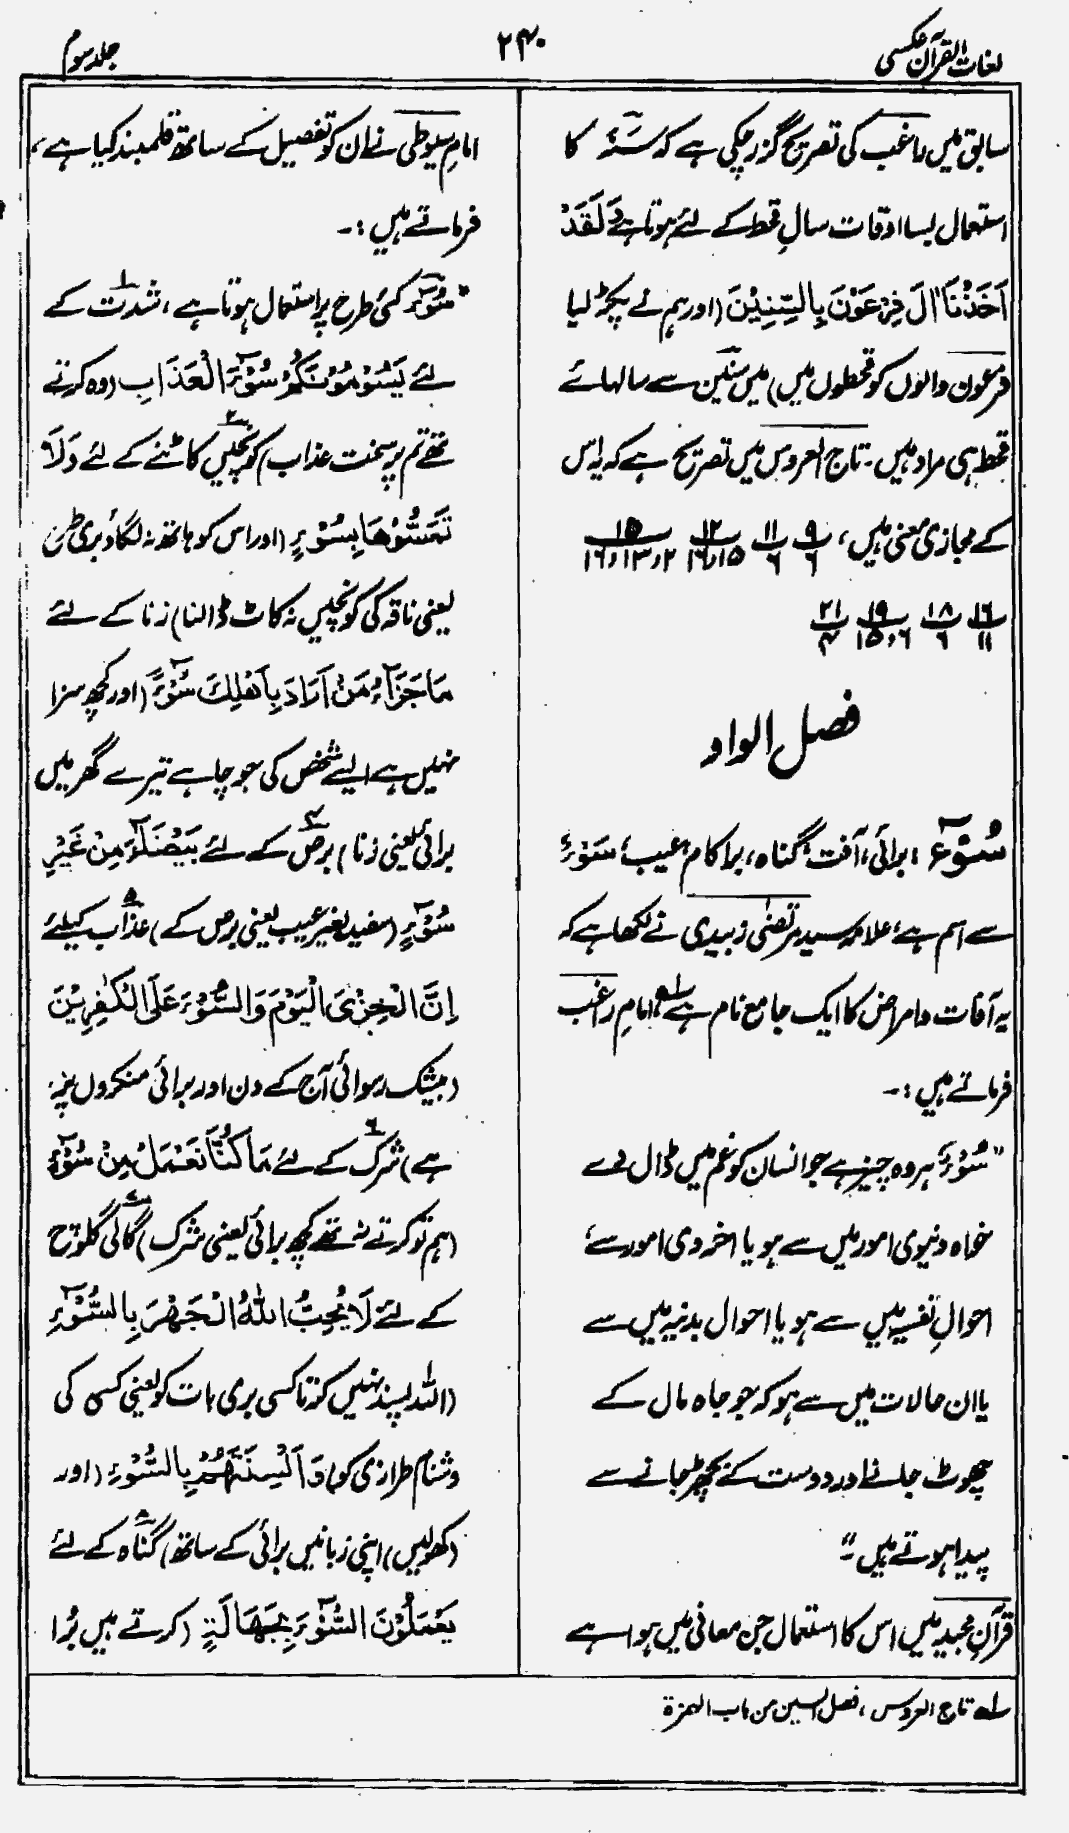 لغات القرآن عکسی
۲۴۰
جلد سوم
سابق میں راغب کی تصریح گزر چکی ہے کہ سَنَۃٌ کا
استعمال بسا اوقات سالِ قحط کے لئے ہوتا ہے وَلَقَدْ
اَخَذْنَآ اٰلَ فِرْعَوْنَ بِالسِّنِیْنَ (اور ہم نے پکڑ لیا
فرعون والوں کو قحطوں میں) میں سنین سے سالہائے
قحط ہی مراد ہیں۔ تاج العروس میں تصریح ہے کہ یہ اس
کے مجازی معنی ہیں، ۹/۶ ۱۱/۶ ۱۲/۱۵،۱۶ ۱۵/۲،۱۳،۱۶
۱۶/۱۱ ۱۸/۶ ۱۹/۶،۱۵ ۲۱/۴
فصل الواو
سُوْٓء: برائی، آفت، گناہ، برا کام، عیب، سَوْءٌ
سے اسم ہے، علامہ سید مرتضٰی زبیدی نے لکھا ہے کہ
یہ آفات و امراض کا ایک جامع نام ہے ؎۱، امامِ راغب
فرماتے ہیں :۔
"سُوْٓءٌ ہر وہ چیز ہے جو انسان کو غم میں ڈال دے
خواہ دنیوی امور میں سے ہو یا اخروی امور سے،
احوالِ نفسیہ میں سے ہو یا احوال بدنیہ میں سے
یا ان حالات میں سے ہو کہ جو جاہ مال کے
چھوٹ جانے اور دوست کے بچھڑ جانے سے
پیدا ہوتے ہیں۔"
قرآن مجید میں اس کا استعمال جن معانی میں ہوا ہے
امامِ سیوطی نے ان کو تفصیل کے ساتھ قلمبند کیا ہے،
فرماتے ہیں :۔
"سُوْٓءٌ کئی طرح پر استعمال ہوتا ہے، ۱ شدت کے
لئے یَسُوْمُوْنَکُمْ سُوْٓءَ الْعَذَابِ (وہ کرتے
تھے تم پر سخت عذاب) ۲ کونچیں کاٹنے کے لئے وَلَا
تَمَسُّوْهَا بِسُوْٓءٍ (اور اس کو ہاتھ نہ لگاؤ بری طرح
یعنی ناقہ کی کونچیں نہ کاٹ ڈالنا) زنا کے لئے
مَا جَزَآءُ مَنْ اَرَادَ بِاَهْلِكَ سُوْٓءًا (اور کچھ سزا
نہیں ہے ایسے شخص کی جو چاہے تیرے گھر میں
برائی یعنی زنا) ۴ برص کے لئے بَیْضَآءَ مِنْ غَیْرِ
سُوْٓءٍ (سفید بغیر عیب یعنی برص کے) ۵ عذاب کیلئے
اِنَّ الْخِزْیَ الْیَوْمَ وَالسُّوْٓءَ عَلَی الْکٰفِرِیْنَ
(بیشک رسوائی آج کے دن اور برائی منکروں پر
ہے) ۶ شرک کے لئے مَا کُنَّا نَعْمَلُ مِنْ سُوْٓءٍ
(ہم تو کرتے نہ تھے کچھ برائی یعنی شرک) ۷ گالی گلوتح
کے لئے لَا یُحِبُّ اللّٰهُ الْجَهْرَ بِالسُّوْٓءِ
(اللہ پسند نہیں کرتا کسی بری بات کو یعنی کسی کی
دشنام طرازی کو) وَ اَلْسِنَتَهُمْ بِالسُّوْٓءِ (اور
(کھولیں) اپنی زبانیں برائی کے ساتھ) ۸ گناہ کے لئے
یَعْمَلُوْنَ السُّوْٓءَ بِجَهَالَةٍ (کرتے ہیں بُرا
؎۱ تاج العروس، فصل السین من باب الہمزۃ